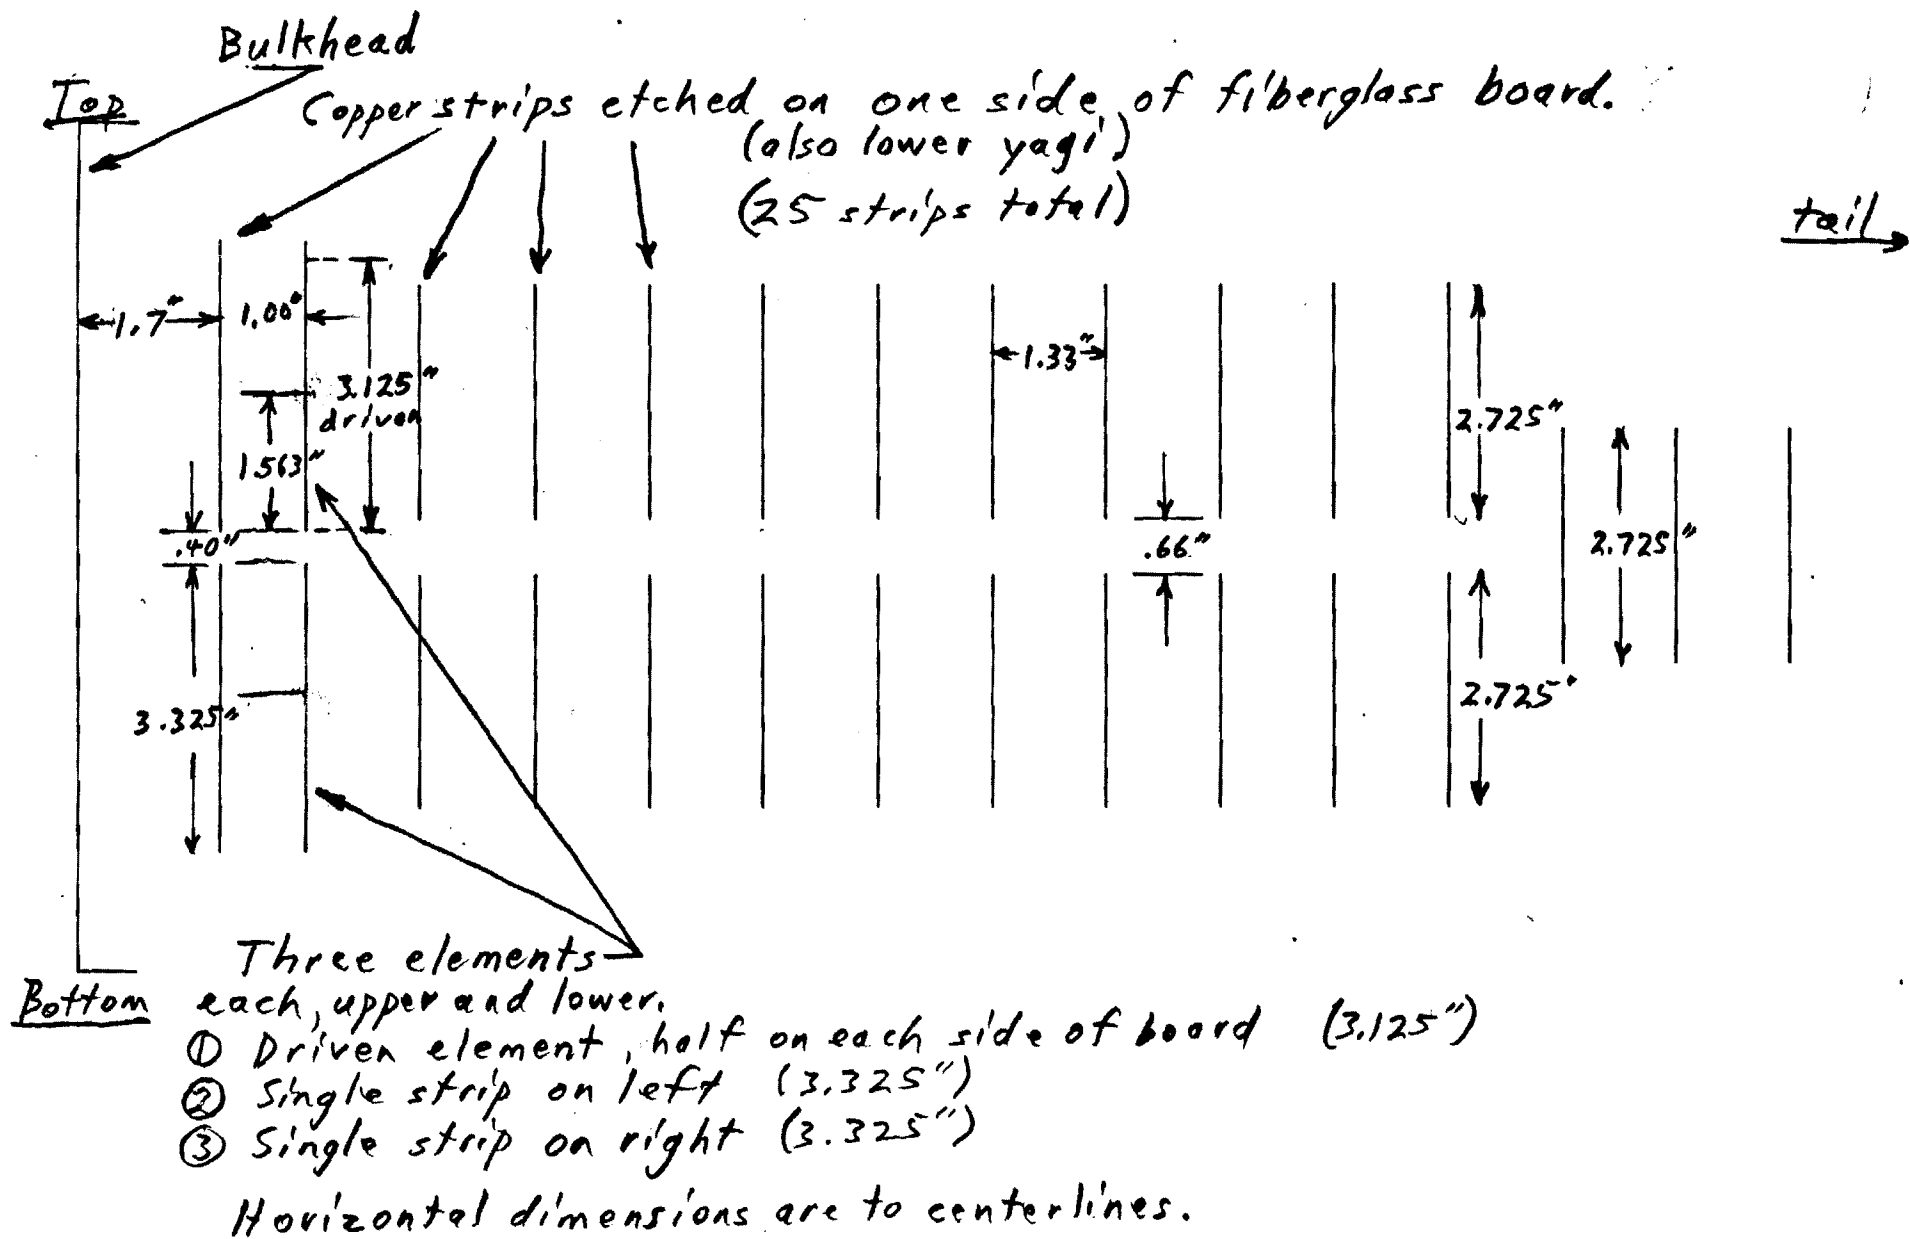 Bulkhead
Top
Copper strips etched on one side of fiberglass board.
(also lower yagi)
(25 strips total)
tail
1.7" 1.00"
1.33"
3.125"
driven
2.725"
1563"
.40" .66" 2.725"
3.325" 2.725"
Three elements
Bottom each, upper and lower.
① Driven element, half on each side of board (3.125")
② Single strip on left (3.325")
③ Single strip on right (3.325")
Horizontal dimensions are to centerlines.